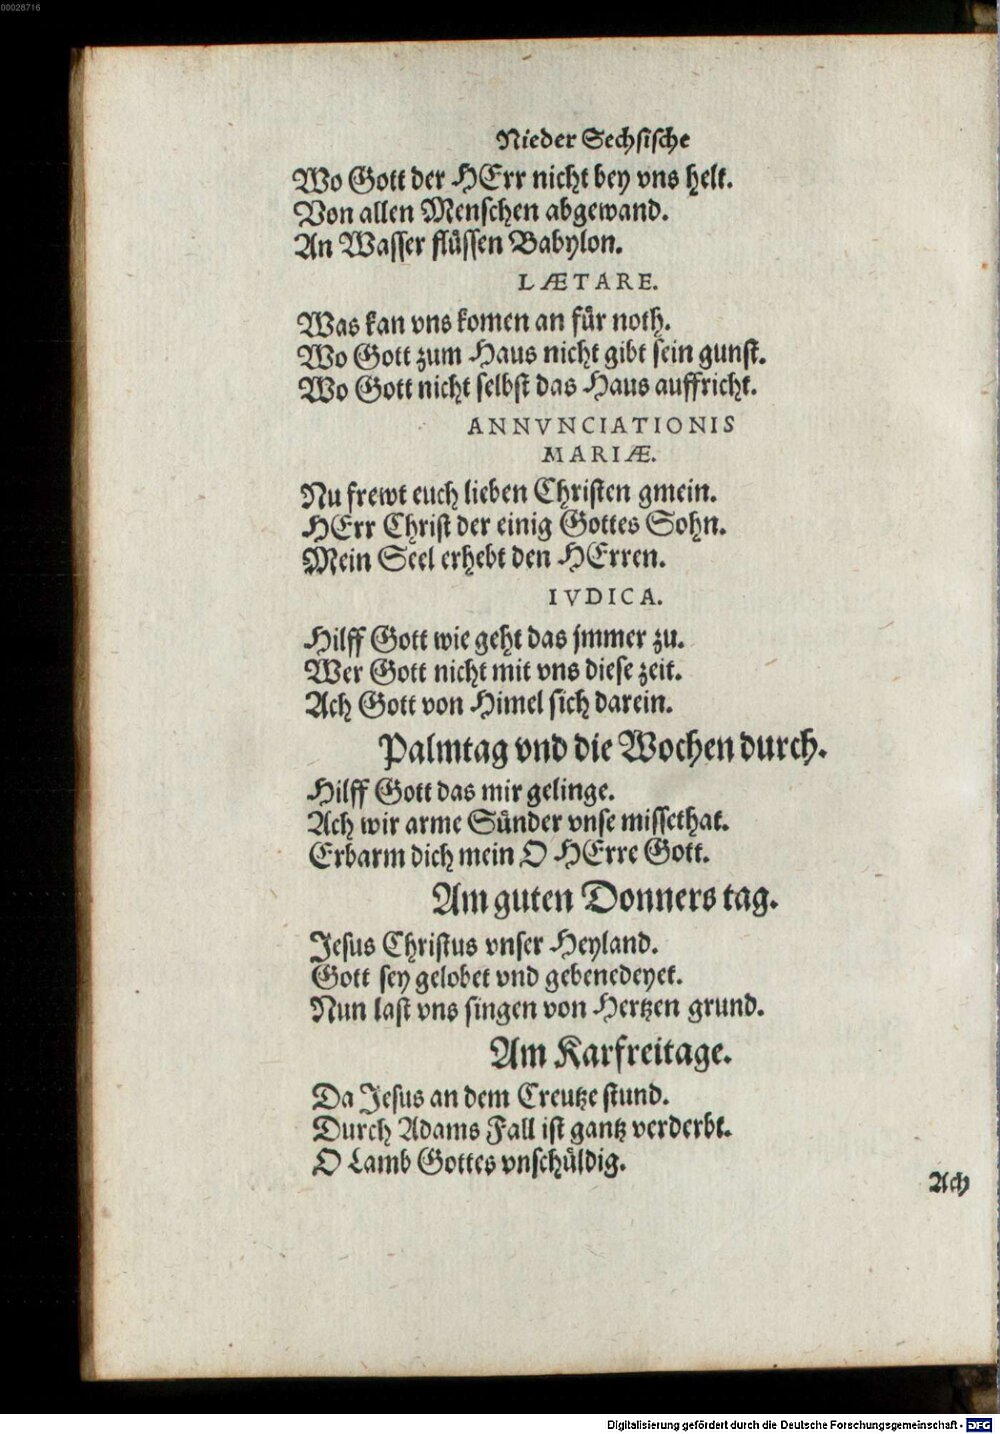 00028716
Nieder Sechsische
Wo Gott der HErr nicht bey vns helt.
Von allen Menschen abgewand.
An Wasser flüssen Babylon.
LÆTARE.
Was kan vns komen an für noth.
Wo Gott zum Haus nicht gibt sein gunst.
Wo Gott nicht selbst das Haus auffricht.
ANNVNCIATIONIS
MARIÆ.
Nu frewt euch lieben Christen gmein.
HErr Christ der einig Gottes Sohn.
Mein Seel erhebt den HErren.
IVDICA.
Hilff Gott wie geht das jmmer zu.
Wer Gott nicht mit vns diese zeit.
Ach Gott von Himel sich darein.
Palmtag vnd die Wochen durch.
Hilff Gott das mir gelinge.
Ach wir arme Sünder vnse missethat.
Erbarm dich mein O HErre Gott.
Am guten Donners tag.
Jesus Christus vnser Heyland.
Gott sey gelobet vnd gebenedeyet.
Nun last vns singen von Hertzen grund.
Am Karfreitage.
Da Jesus an dem Creutze stund.
Durch Adams Fall ist gantz verderbt.
O Lamb Gottes vnschüldig.
Ach
Digitalisierung gefördert durch die Deutsche Forschungsgemeinschaft - DFG